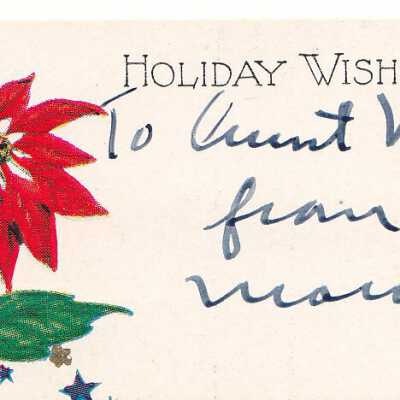 HOLIDAY WISH
To Aunt
from